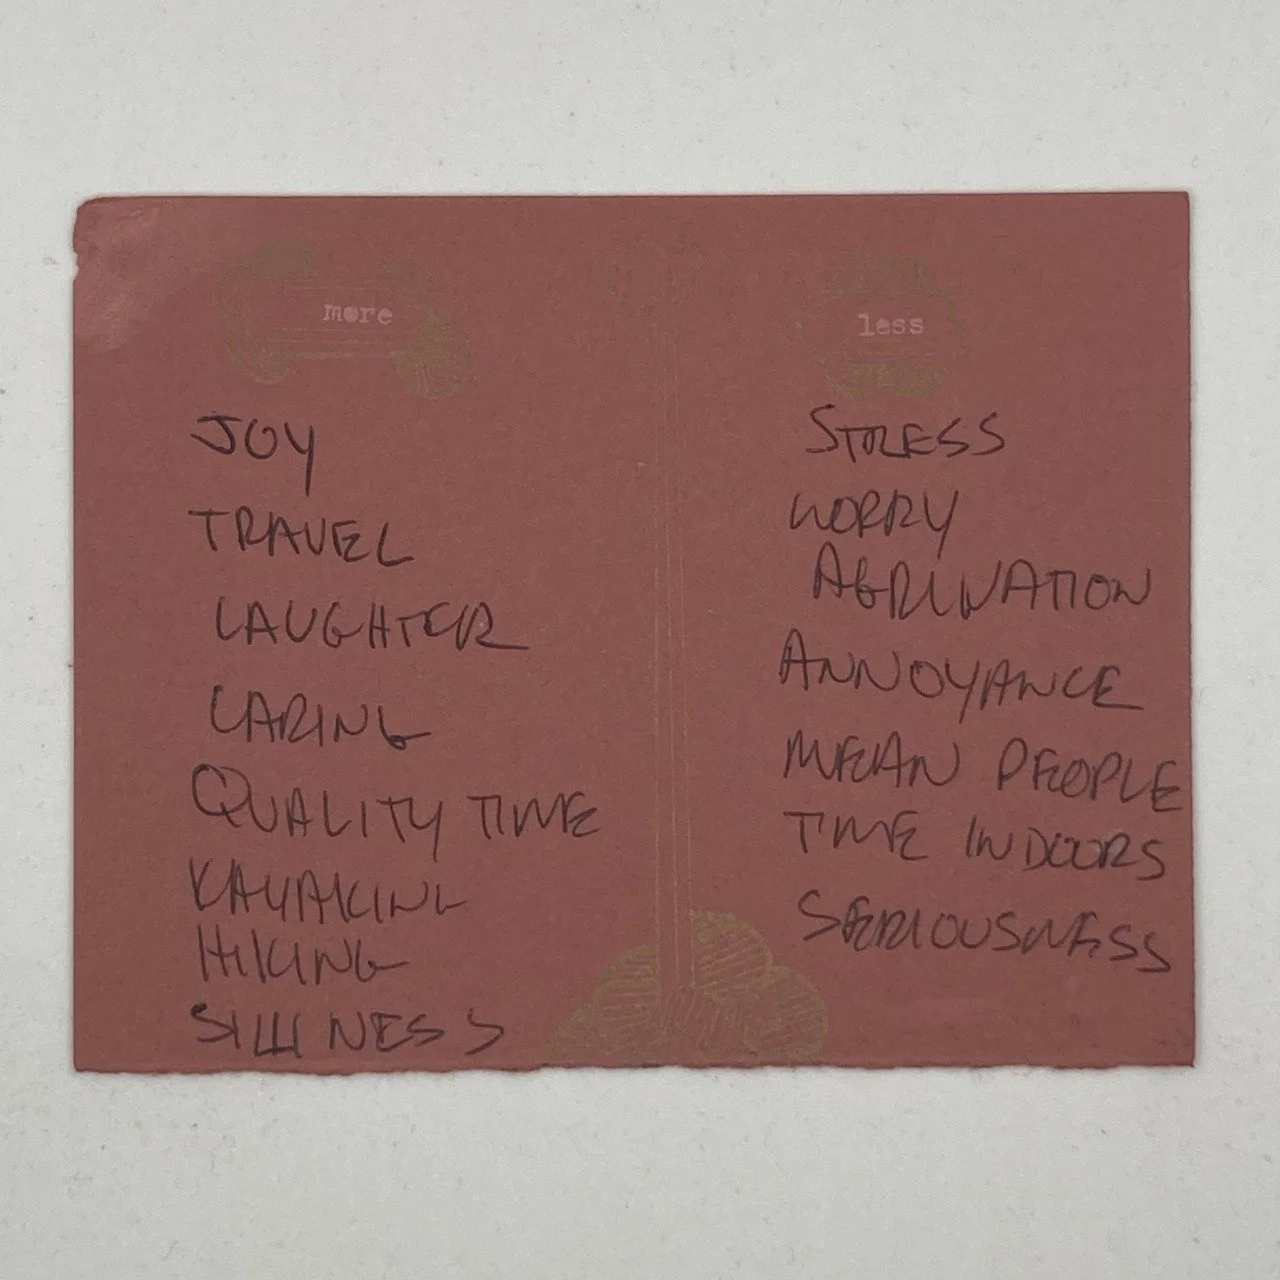 more
JOY
TRAVEL
LAUGHTER
CARING
QUALITY TIME
KAYAKING
HIKING
SILLINESS
less
STRESS
WORRY
ANNOYANCE
MEAN PEOPLE
TIME INDOORS
SERIOUSNESS